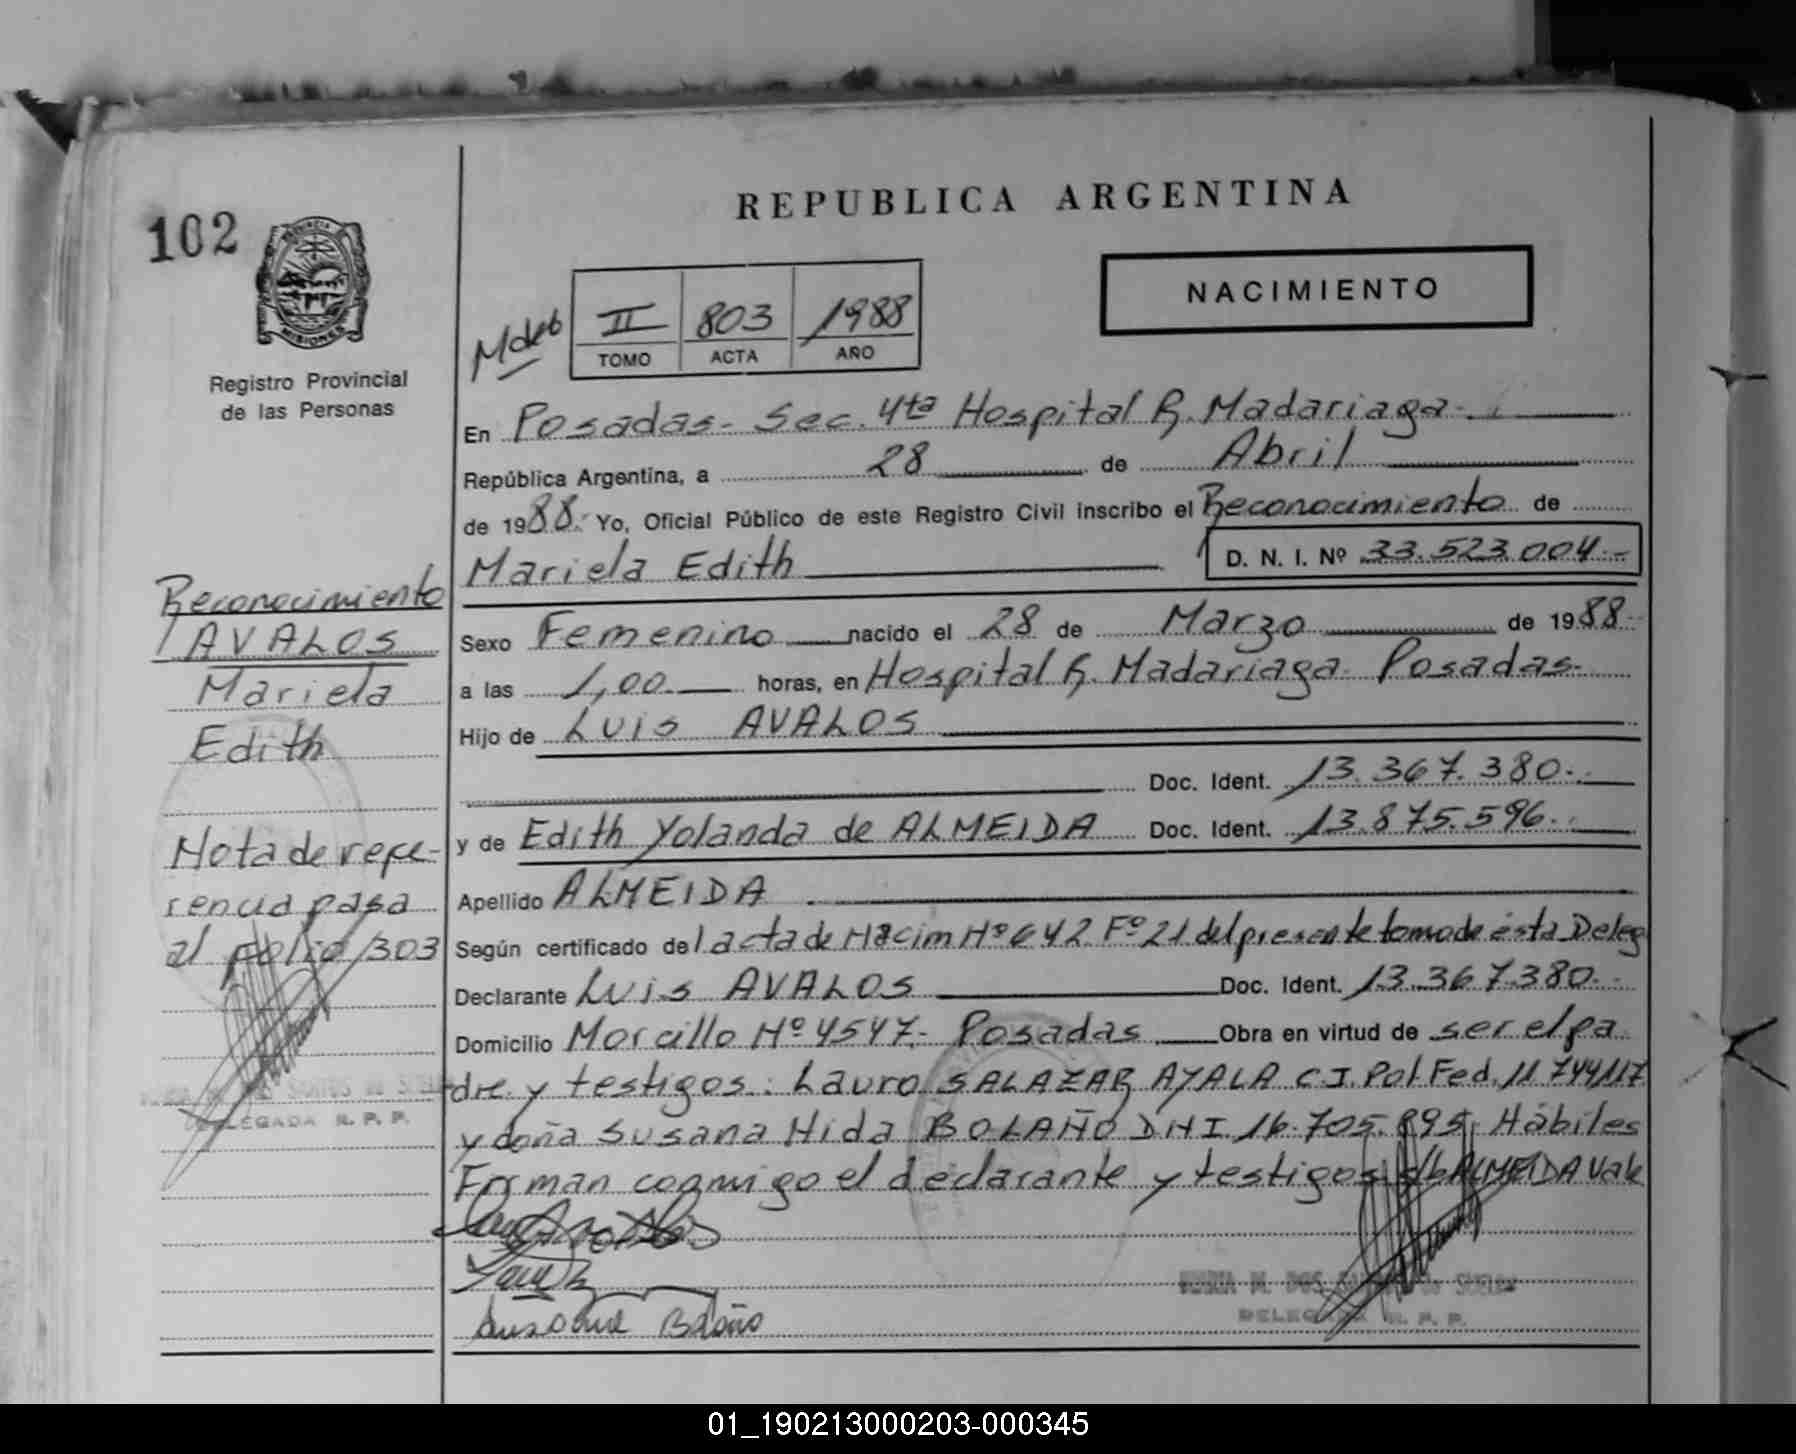 REPUBLICA ARGENTINA
102
PROVINCIA DE MISIONES
Registro Provincial
de las Personas
NACIMIENTO
II 803 1988
TOMO ACTA AÑO
En Posadas- Sec. 4ta Hospital R. Madariaga-
República Argentina, a 28 de Abril
de 1988.- Yo, Oficial Público de este Registro Civil inscribo el Reconocimiento de
Mariela Edith D. N. I. Nº 33.523.004.-
Sexo Femenino nacido el 28 de Marzo de 1988-
a las 1,00 horas, en Hospital R. Madariaga- Posadas-
Hijo de Luis AVALOS
Doc. Ident. 13.367.380-
y de Edith Yolanda de ALMEIDA Doc. Ident. 13.875.596-
Apellido ALMEIDA
Según certificado del acta de Nacim Nº 642 Fº 21 del presente tomo de ésta Deleg
Declarante Luis AVALOS Doc. Ident. 13.367.380-
Domicilio Morcillo Nº 4547- Posadas Obra en virtud de ser el pa
dre y testigos: Lauro SALAZAR AYALA C.I. Pol Fed. 11.744.117
y doña Susana Nida BOLAÑO DNI. 16.705.895, Hábiles
Firman conmigo el declarante y testigos s/b ALMEIDA Vale
Susana Bolaño
MARIA M. DOS SANTOS de SUELI
DELEGADA R. P. P.
Reconocimiento
AVALOS
Mariela
Edith
Nota de refe-
rencia pasa
al folio 303
DOS SANTOS de
DELEGADA R. P. P.
01_190213000203-000345